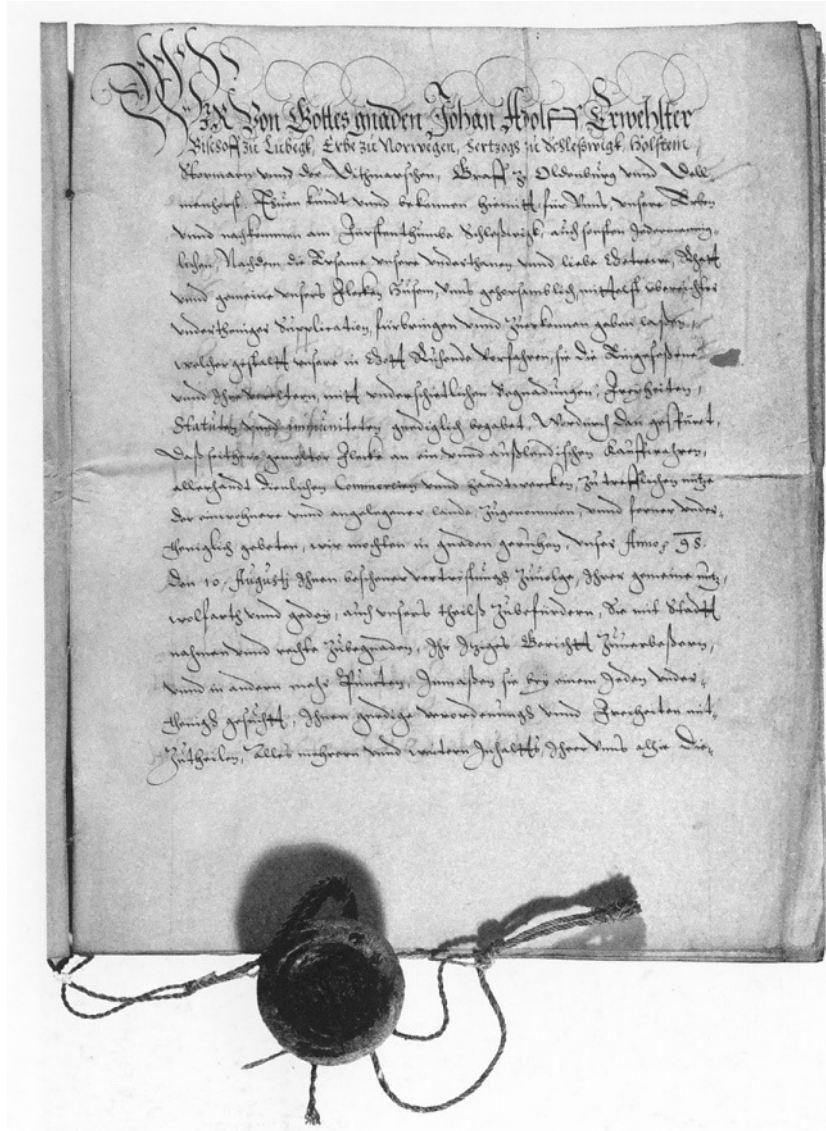 WIR Von Gottes gnaden Johan Adolff Erwehlter
Bischoff zu Lubegk, Erbe zu Norwegen, Hertzogk zu Schleßwigk, Holstein
Stormarn vnnd der Dithmarschen, Graff zu Oldenburg vnnd Dell-
menhorst, Thuen kundt vnnd bekennen hiemitt, für Vnns, vnsere Erben
vnnd nachkommen am Fürstenthumbe Schleßwigk, auch sonsten Jedermennig-
lichen, Nachdem die Ersame vnsere vnderthanen vnnd liebe Getrewe, Rhatt
vnnd gemeine vnsers Flecken Husum, Vnns gehorsamblich, mittelst vberreichter
vndertheniger Supplication, fürbringen vnnd zuerkennen geben laßen,
welcher gestaltt vnsere in Gott Ruhende Vorfahren, sie die Eingeseßene
vnnd Ihre vorelltern, mitt vnderschietlichen Begnadungen, Freyheiten,
Statuten vnnd immuniteten gnediglich begabet, Wordurch dan gespüret,
Daß seithero gemelter Flecke an ein vnnd außländischen Kauffwahren,
allerhandt dienlichen Commercien vnnd Handtwercken, zu trefflichen nutze
der einwohnere vnnd angelegener lande, zugenommen, vnnd ferner vnder-
theniglich gebeten, wir mochten in gnaden geruhen, vnser Anno 98.
den 10. Augustj Ihnen beschener vertröstungk zuuolge, Ihrer gemeine nutz,
wolfarth vnnd gedey, auch vnsers theilß zubefürdern, Sie mit Stadtt
nahmen vnnd rechte zubegnaden, Ihr Itziges Gerichtt zuuerbeßern,
vnnd in andern mehr Puncten, Inmaßen sie bey einem Jeden vnder-
thenigk gesucht, Ihnen gnedige verordenungk vnnd Freiheiten mit-
zutheilen, Alles mehrern vnnd weitern Inhaltts, Ihrer Vnns alhie